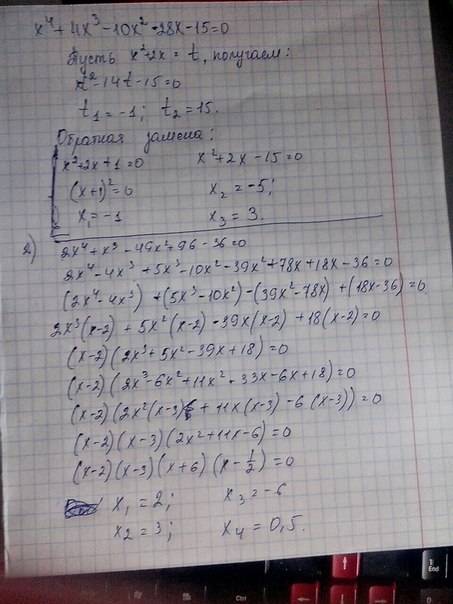 x⁴+4x³-10x²-28x-15=0
Пусть x²+2x=t, получаем:
t²-14t-15=0
t₁=-1; t₂=15.
Обратная замена:
x²+2x+1=0 x²+2x-15=0
(x+1)²=0 x₂=-5;
x₁=-1 x₃=3.
2) 2x⁴+x³-49x²+96-36=0
2x⁴-4x³+5x³-10x²-39x²+78x+18x-36=0
(2x⁴-4x³)+(5x³-10x²)-(39x²-78x)+(18x-36)=0
2x³(x-2)+5x²(x-2)-39x(x-2)+18(x-2)=0
(x-2)(2x³+5x²-39x+18)=0
(x-2)(2x³-6x²+11x²-33x-6x+18)=0
(x-2)(2x²(x-3)+11x(x-3)-6(x-3))=0
(x-2)(x-3)(2x²+11x-6)=0
(x-2)(x-3)(x+6)(x-1/2)=0
x₁=2; x₃=-6
x₂=3; x₄=0,5.
Ctrl
1
End